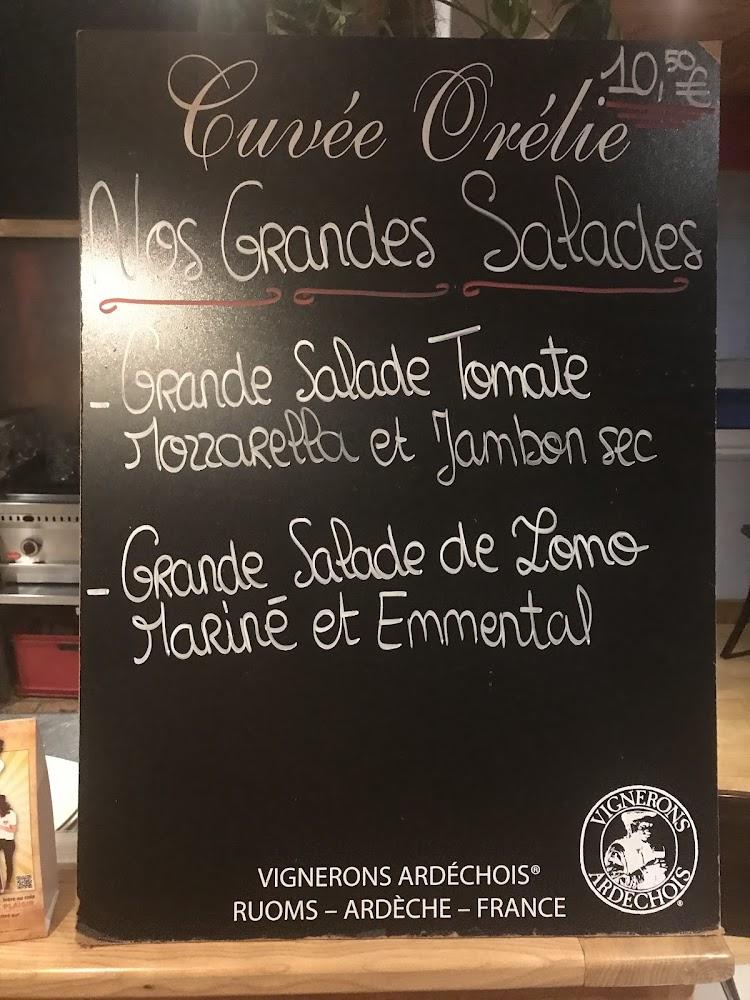 10,50€
Cuvée Orélie
Nos Grandes Salades
- Grande Salade Tomate
Mozzarella et Jambon sec
- Grande Salade de Lomo
Mariné et Emmental
VIGNERONS
ARDÉCHOIS
®
VIGNERONS ARDÉCHOIS®
RUOMS – ARDÈCHE – FRANCE
PLAISIR